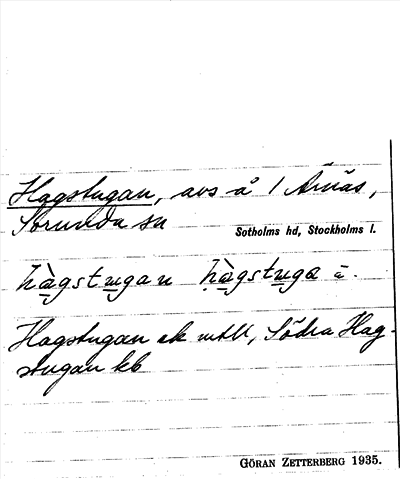 Hagstugan, avs å 1 Årnäs,
Sorunda sn
Sotholms hd, Stockholms l.
hàgstugan hàgstuga ä.
Hagstugan ek mtbl, Södra Hag-
stugan kb
GÖRAN ZETTERBERG 1935.